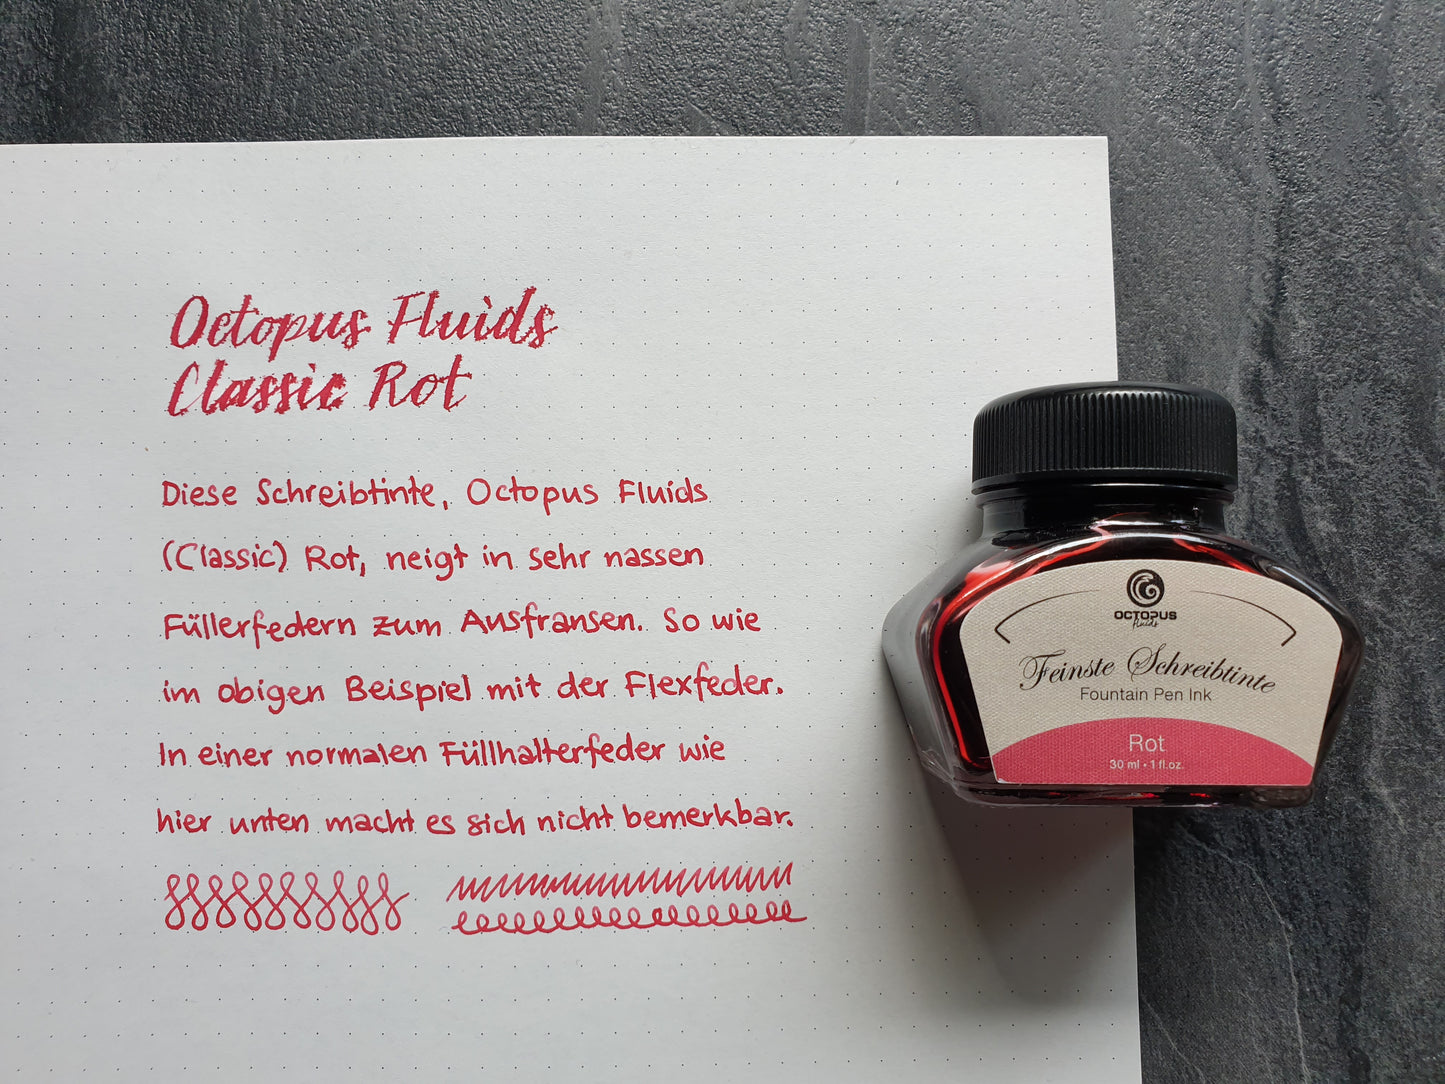 Octopus Fluids
Classic Rot
Diese Schreibtinte, Octopus Fluids
(Classic) Rot, neigt in sehr nassen
Füllerfedern zum Ausfransen. So wie
im obigen Beispiel mit der Flexfeder.
In einer normalen Füllhalterfeder wie
hier unten macht es sich nicht bemerkbar.
OCTOPUS
fluids
Feinste Schreibtinte
Fountain Pen Ink
Rot
30 ml • 1 fl.oz.